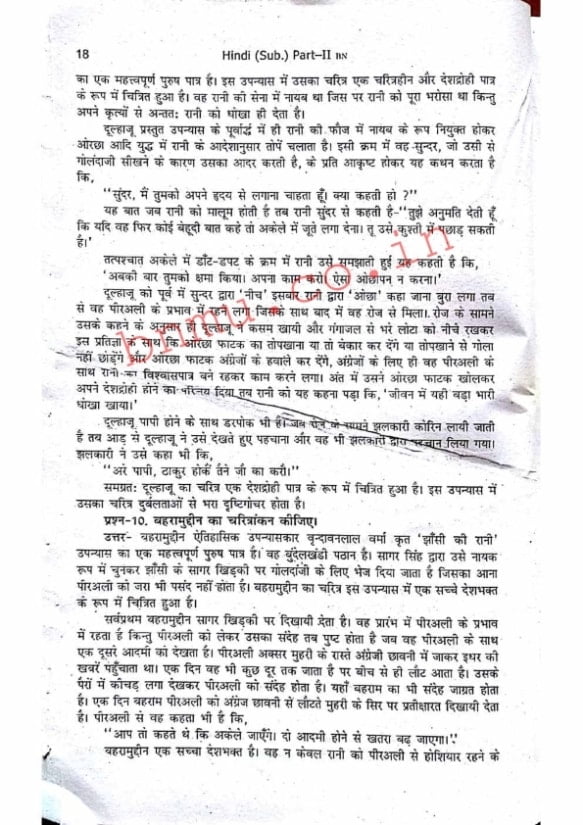 18 Hindi (Sub.) Part–II BN
का एक महत्त्वपूर्ण पुरुष पात्र है। इस उपन्यास में उसका चरित्र एक चरित्रहीन और देशद्रोही पात्र
के रूप में चित्रित हुआ है। वह रानी की सेना में नायब था जिस पर रानी को पूरा भरोसा था किन्तु
अपने कृत्यों से अन्ततः रानी को धोखा ही देता है।
दूल्हाजू प्रस्तुत उपन्यास के पूर्वार्द्ध में ही रानी की फौज में नायब के रूप नियुक्त होकर
ओरछा आदि युद्ध में रानी के आदेशानुसार तोपें चलाता है। इसी क्रम में वह सुन्दर, जो उसी से
गोलंदाजी सीखने के कारण उसका आदर करती है, के प्रति आकृष्ट होकर यह कथन करता है
कि,
‘‘सुंदर, मैं तुमको अपने हृदय से लगाना चाहता हूँ। क्या कहती हो ?’’
यह बात जब रानी को मालूम होती है तब रानी सुंदर से कहती है–‘‘तुझे अनुमति देती हूँ
कि यदि वह फिर कोई बेहूदी बात कहे तो अकेले में जूते लगा देना। तू उसे कुश्ती में पछाड़ सकती
है।’
तत्पश्चात अकेले में डाँट-डपट के क्रम में रानी उसे समझाती हुई यह कहती है कि,
‘अबकी बार तुमको क्षमा किया। अपना काम करो। ऐसा ओछापन न करना।’
दूल्हाजू को पूर्व में सुन्दर द्वारा ‘नीच’ इसबार रानी द्वारा ‘ओछा’ कहा जाना बुरा लगा तब
से वह पीरअली के प्रभाव में रहने लगा जिसके साथ बाद में वह रोज से मिला। रोज के सामने
उसके कहने के अनुसार ही दूल्हाजू ने कसम खायी और गंगाजल से भरे लोटा को नीचे रखकर
इस प्रतिज्ञा के साथ कि ओरछा फाटक का तोपखाना या तो बेकार कर देंगे या तोपखाने से गोला
नहीं छोड़ेंगे और ओरछा फाटक अंग्रेजों के हवाले कर देंगे, अंग्रेजों के लिए ही वह पीरअली के
साथ रानी का विश्वासपात्र बने रहकर काम करने लगा। अंत में उसने ओरछा फाटक खोलकर
अपने देशद्रोही होने का परिचय दिया तब रानी को यह कहना पड़ा कि, ‘जीवन में यही बड़ा भारी
धोखा खाया।’
दूल्हाजू पापी होने के साथ डरपोक भी है। जब रोज के सामने झलकारी कोरिन लायी जाती
है तब आड़ से दूल्हाजू ने उसे देखते हुए पहचाना और वह भी झलकारी द्वारा पहचान लिया गया।
झलकारी ने उसे कहा भी कि,
‘‘अरे पापी, ठाकुर होकें तैने जौ का करौ।’’
समग्रतः दूल्हाजू का चरित्र एक देशद्रोही पात्र के रूप में चित्रित हुआ है। इस उपन्यास में
उसका चरित्र दुर्बलताओं से भरा दृष्टिगोचर होता है।
प्रश्न-10. बहरामुद्दीन का चरित्रांकन कीजिए।
उत्तर– बहरामुद्दीन ऐतिहासिक उपन्यासकार वृन्दावनलाल वर्मा कृत ‘झाँसी की रानी’
उपन्यास का एक महत्त्वपूर्ण पुरुष पात्र है। वह बुंदेलखंडी पठान है। सागर सिंह द्वारा उसे नायक
रूप में चुनकर झाँसी के सागर खिड़की पर गोलदांजी के लिए भेज दिया जाता है जिसका आना
पीरअली को जरा भी पसंद नहीं होता है। बहरामुद्दीन का चरित्र इस उपन्यास में एक सच्चे देशभक्त
के रूप में चित्रित हुआ है।
सर्वप्रथम बहरामुद्दीन सागर खिड़की पर दिखायी देता है। वह प्रारंभ में पीरअली के प्रभाव
में रहता है किन्तु पीरअली को लेकर उसका संदेह तब पुष्ट होता है जब वह पीरअली के साथ
एक दूसरे आदमी को देखता है। पीरअली अक्सर मुहरी के रास्ते अंग्रेजी छावनी में जाकर इधर की
खबरें पहुँचाता था। एक दिन वह भी कुछ दूर तक जाता है पर बीच से ही लौट आता है। उसके
पैरों में कीचड़ लगा देखकर पीरअली को संदेह होता है। यहाँ बहराम का भी संदेह जाग्रत होता
है। एक दिन बहराम पीरअली को अंग्रेज छावनी से लौटते मुहरी के सिर पर प्रतीक्षारत दिखायी देता
है। पीरअली से वह कहता भी है कि,
‘‘आप तो कहते थे कि अकेले जाएँगे। दो आदमी होने से खतरा बढ़ जाएगा।’’
बहरामुद्दीन एक सच्चा देशभक्त है। वह न केवल रानी को पीरअली से होशियार रहने के
bnmu.co.in